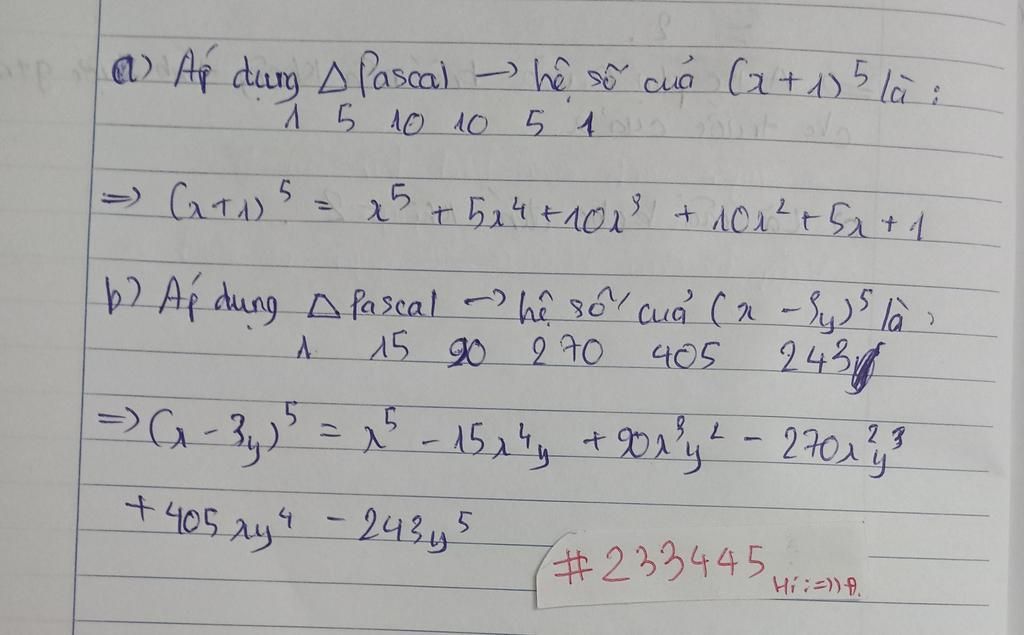 a) Áp dụng △ Pascal → hệ số của (x+1)⁵ là:
1 5 10 10 5 1
=> (x+1)⁵ = x⁵ + 5x⁴ + 10x³ + 10x² + 5x + 1
b) Áp dụng △ Pascal → hệ số của (x - 3y)⁵ là:
1 15 90 270 405 243
=> (x - 3y)⁵ = x⁵ - 15x⁴y + 90x³y² - 270x²y³
+ 405xy⁴ - 243y⁵
#233445
Hi:=))